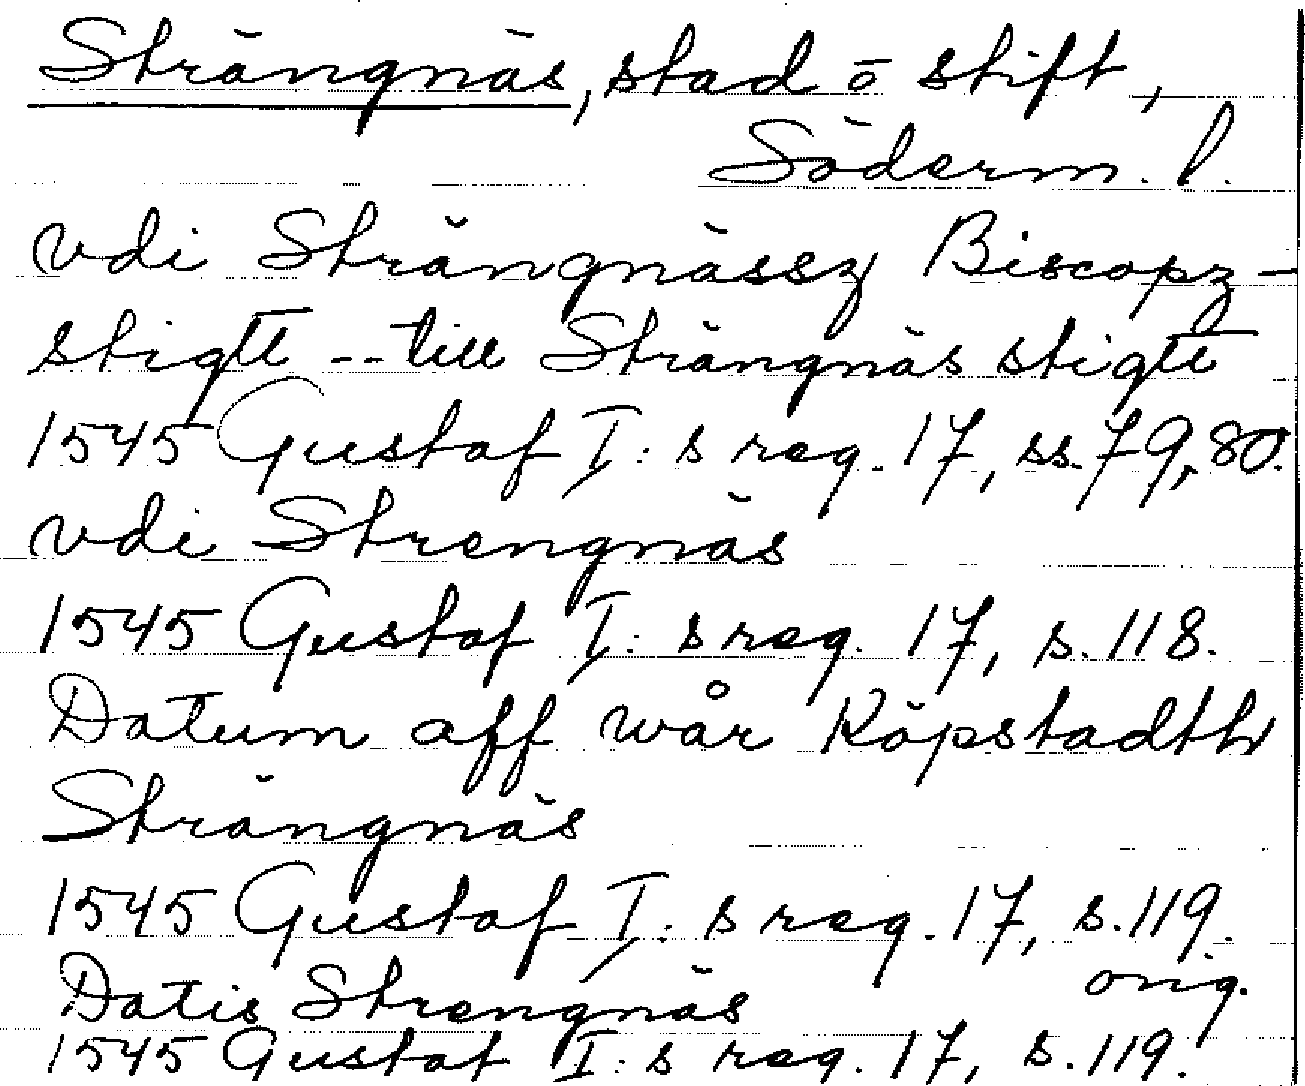 Strängnäs, stad o stift,
Söderm. l.
vdi Strängnässz Biscopz-
stigtt -- till Strängnäs stigtt
1545 Gustaf I: s reg. 17, ss. 79, 80.
vdi Strengnäs
1545 Gustaf I: s reg. 17, s. 118.
Datum aff wår Köpstadth
Strängnäs
1545 Gustaf I: s reg. 17, s. 119.
orig.
Datis Strengnäs
1545 Gustaf I: s reg. 17, s. 119.